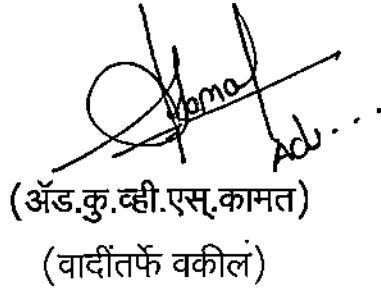 Adv...
(ॲड.कु.व्ही.एस्.कामत)
(वादींतर्फे वकील)